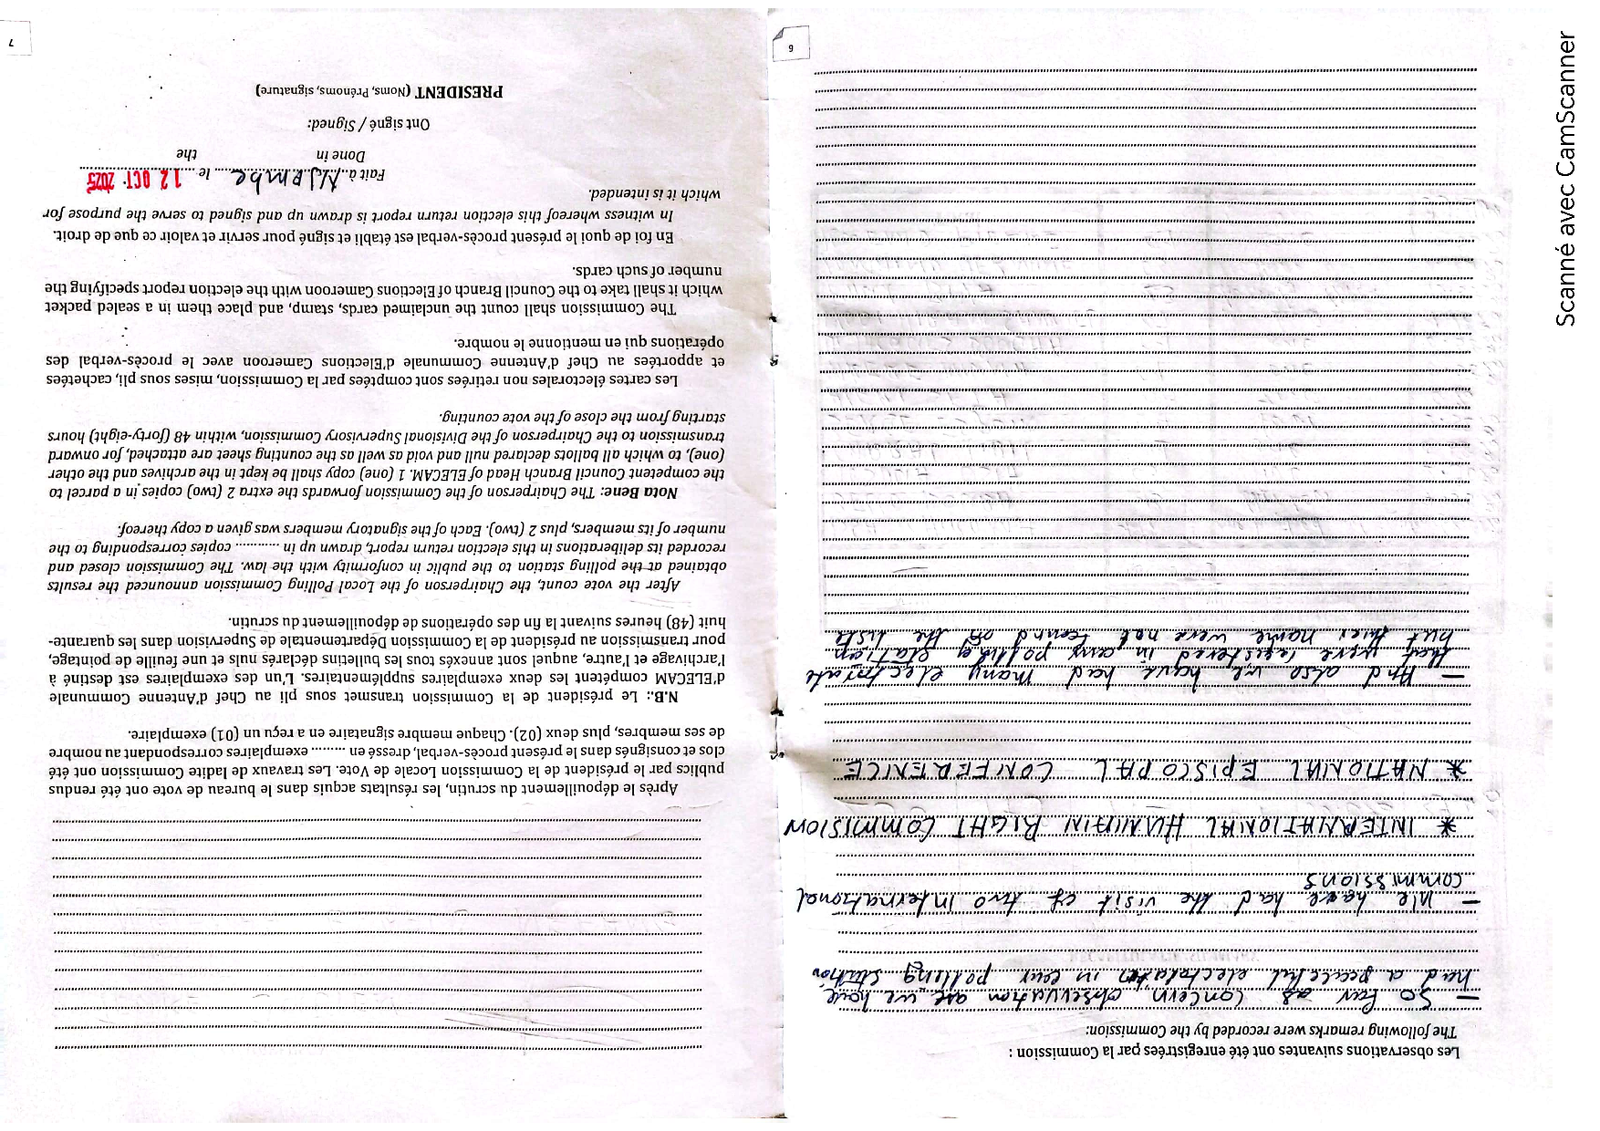 Les observations suivantes ont été enregistrées par la Commission :
The following remarks were recorded by the Commission:
- So far as concern observation are we have
had a peaceful electolates in our polling station
- We have had the visit of two international
commissions
* INTERNATIONAL HUMAIN RIGHT COMMISSION
* NATIONAL EPISCOPAL CONFERENCE
- And also we have had many electorate
that were registered in any polling station
but thier name were not found on the liste
6
Après le dépouillement du scrutin, les résultats acquis dans le bureau de vote ont été rendus
publics par le président de la Commission Locale de Vote. Les travaux de ladite Commission ont été
clos et consignés dans le présent procès-verbal, dressé en ......... exemplaires correspondant au nombre
de ses membres, plus deux (02). Chaque membre signataire en a reçu un (01) exemplaire.
N.B.: Le président de la Commission transmet sous pli au Chef d'Antenne Communale
d'ELECAM compétent les deux exemplaires supplémentaires. L'un des exemplaires est destiné à
l'archivage et l'autre, auquel sont annexés tous les bulletins déclarés nuls et une feuille de pointage,
pour transmission au président de la Commission Départementale de Supervision dans les quarante-
huit (48) heures suivant la fin des opérations de dépouillement du scrutin.
After the vote count, the Chairperson of the Local Polling Commission announced the results
obtained at the polling station to the public in conformity with the law. The Commission closed and
recorded its deliberations in this election return report, drawn up in ........... copies corresponding to the
number of its members, plus 2 (two). Each of the signatory members was given a copy thereof.
Nota Bene: The Chairperson of the Commission forwards the extra 2 (two) copies in a parcel to
the competent Council Branch Head of ELECAM. 1 (one) copy shall be kept in the archives and the other
(one), to which all ballots declared null and void as well as the counting sheet are attached, for onward
transmission to the Chairperson of the Divisional Supervisory Commission, within 48 (forty-eight) hours
starting from the close of the vote counting.
Les cartes électorales non retirées sont comptées par la Commission, mises sous pli, cachetées
et apportées au Chef d'Antenne Communale d'Elections Cameroon avec le procès-verbal des
opérations qui en mentionne le nombre.
The Commission shall count the unclaimed cards, stamp, and place them in a sealed packet
which it shall take to the Council Branch of Elections Cameroon with the election report specifying the
number of such cards.
En foi de quoi le présent procès-verbal est établi et signé pour servir et valoir ce que de droit.
In witness whereof this election return report is drawn up and signed to serve the purpose for
which it is intended.
Fait à Njombe le 12 OCT 2025
Done in the
Ont signé / Signed:
PRESIDENT (Noms, Prénoms, signature)
7
Scanné avec CamScanner